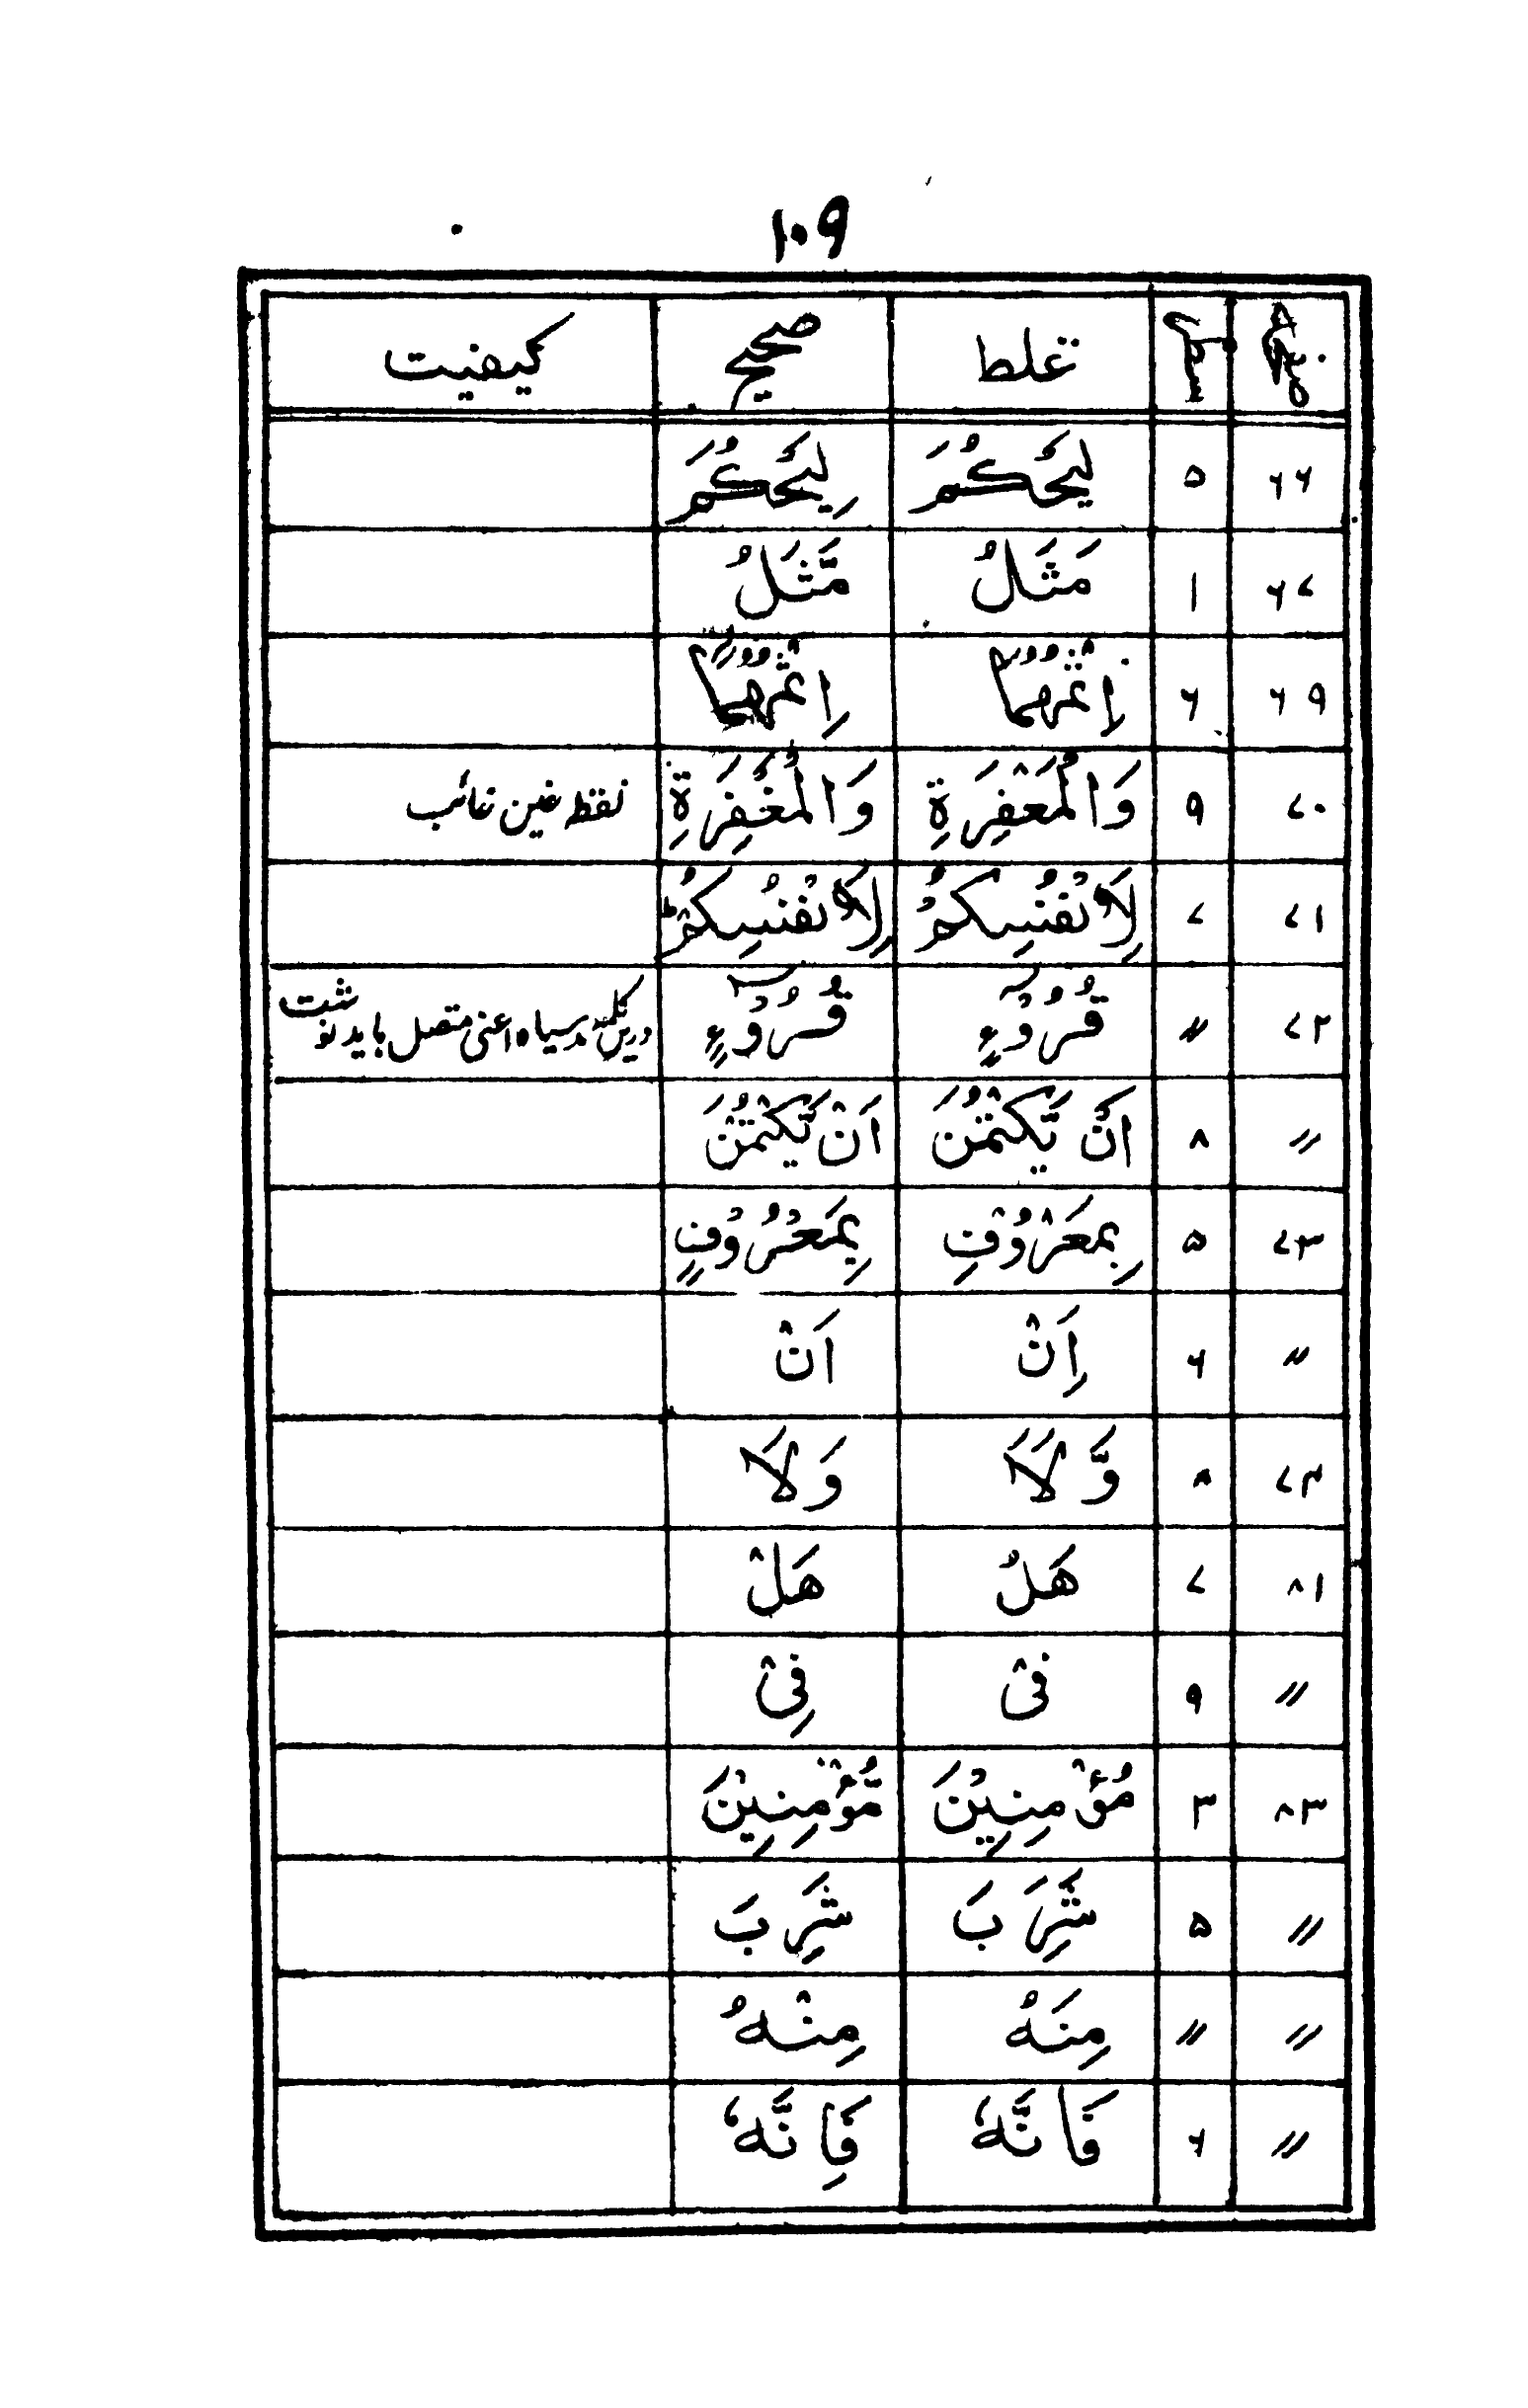 ۱۰۹
صفحہ سطر غلط صحیح کیفیت
۶۶ ۵ لِيَحْكُمَ لِيَحْكُمَ
۶۷ ۱ مَثَلُ مَّثَلُ
۶۹ ۶ اِثْمُهُمَا اِثْمُهُمَآ
۷۰ ۹ وَالْمَعْفِرَةِ وَالْمَغْفِرَةِ نقطہ غین غائب
۷۱ ۷ لِاَنْفُسِكُمْ لِاَنْفُسِكُمْ ؕ
۷۲ 〃 قُرُوْٓءٍ قُرُوْٓءٍ
〃 ۸ اَنْ يَّكْتُمْنَ اَنْ يَّكْتُمْنَ
۷۳ ۵ بِمَعْرُوْفِ بِمَعْرُوْفٍ
〃 ۶ اِنْ اَنْ
۷۴ ۸ وَّ لَا وَ لَا
۸۱ ۷ هَلُ هَلْ
〃 ۹ فیْ فِیْ
۸۳ ۳ مُؤْمِنِيْنَ مُّؤْمِنِيْنَ
〃 ۵ شَرِبَ شَرِبَ
〃 〃 مِنَهُ مِنْهُ
〃 ۶ فَاَنَّهٗ فَاِنَّهٗ